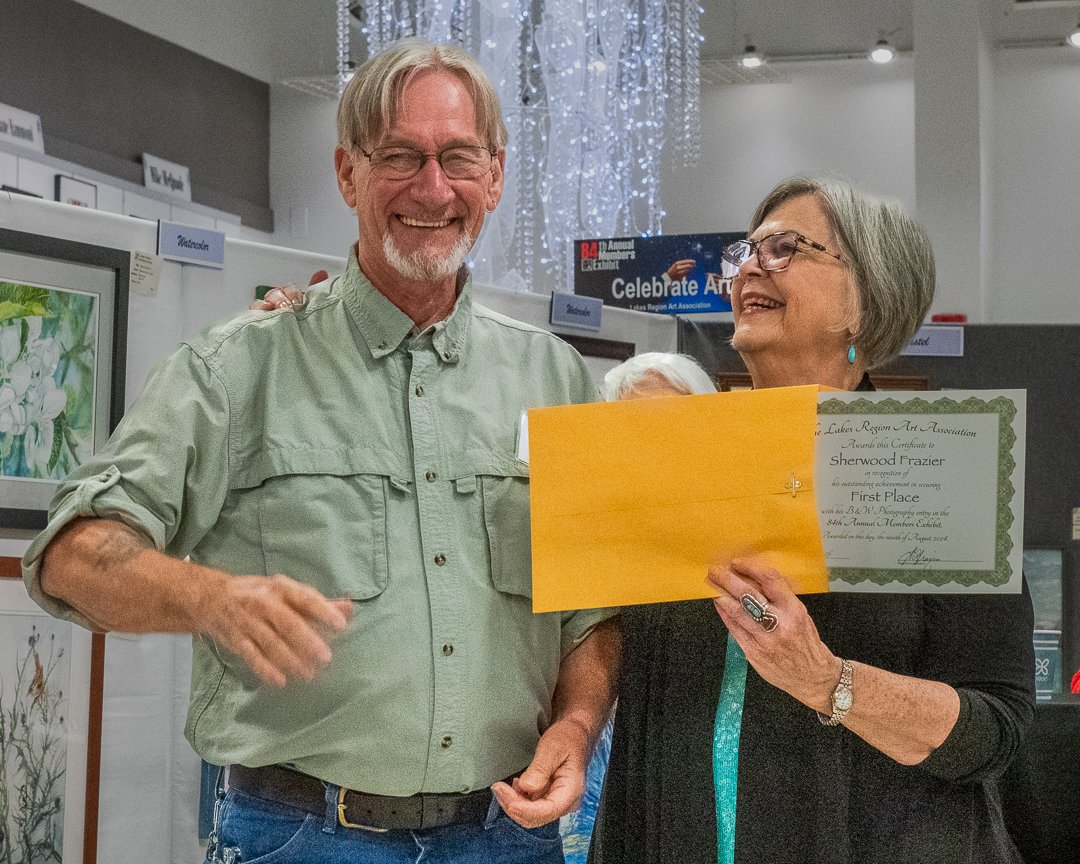 Watercolor
Watercolor
84th Annual
Members
Exhibit
Celebrate Art
Lakes Region Art Association
Lakes Region Art Association
Awards this Certificate to
Sherwood Frazier
in recognition of
his outstanding achievement in securing
First Place
with his B&W Photography entry in the
84th Annual Members Exhibit.
Awarded on this day, the ninth of August, 2024